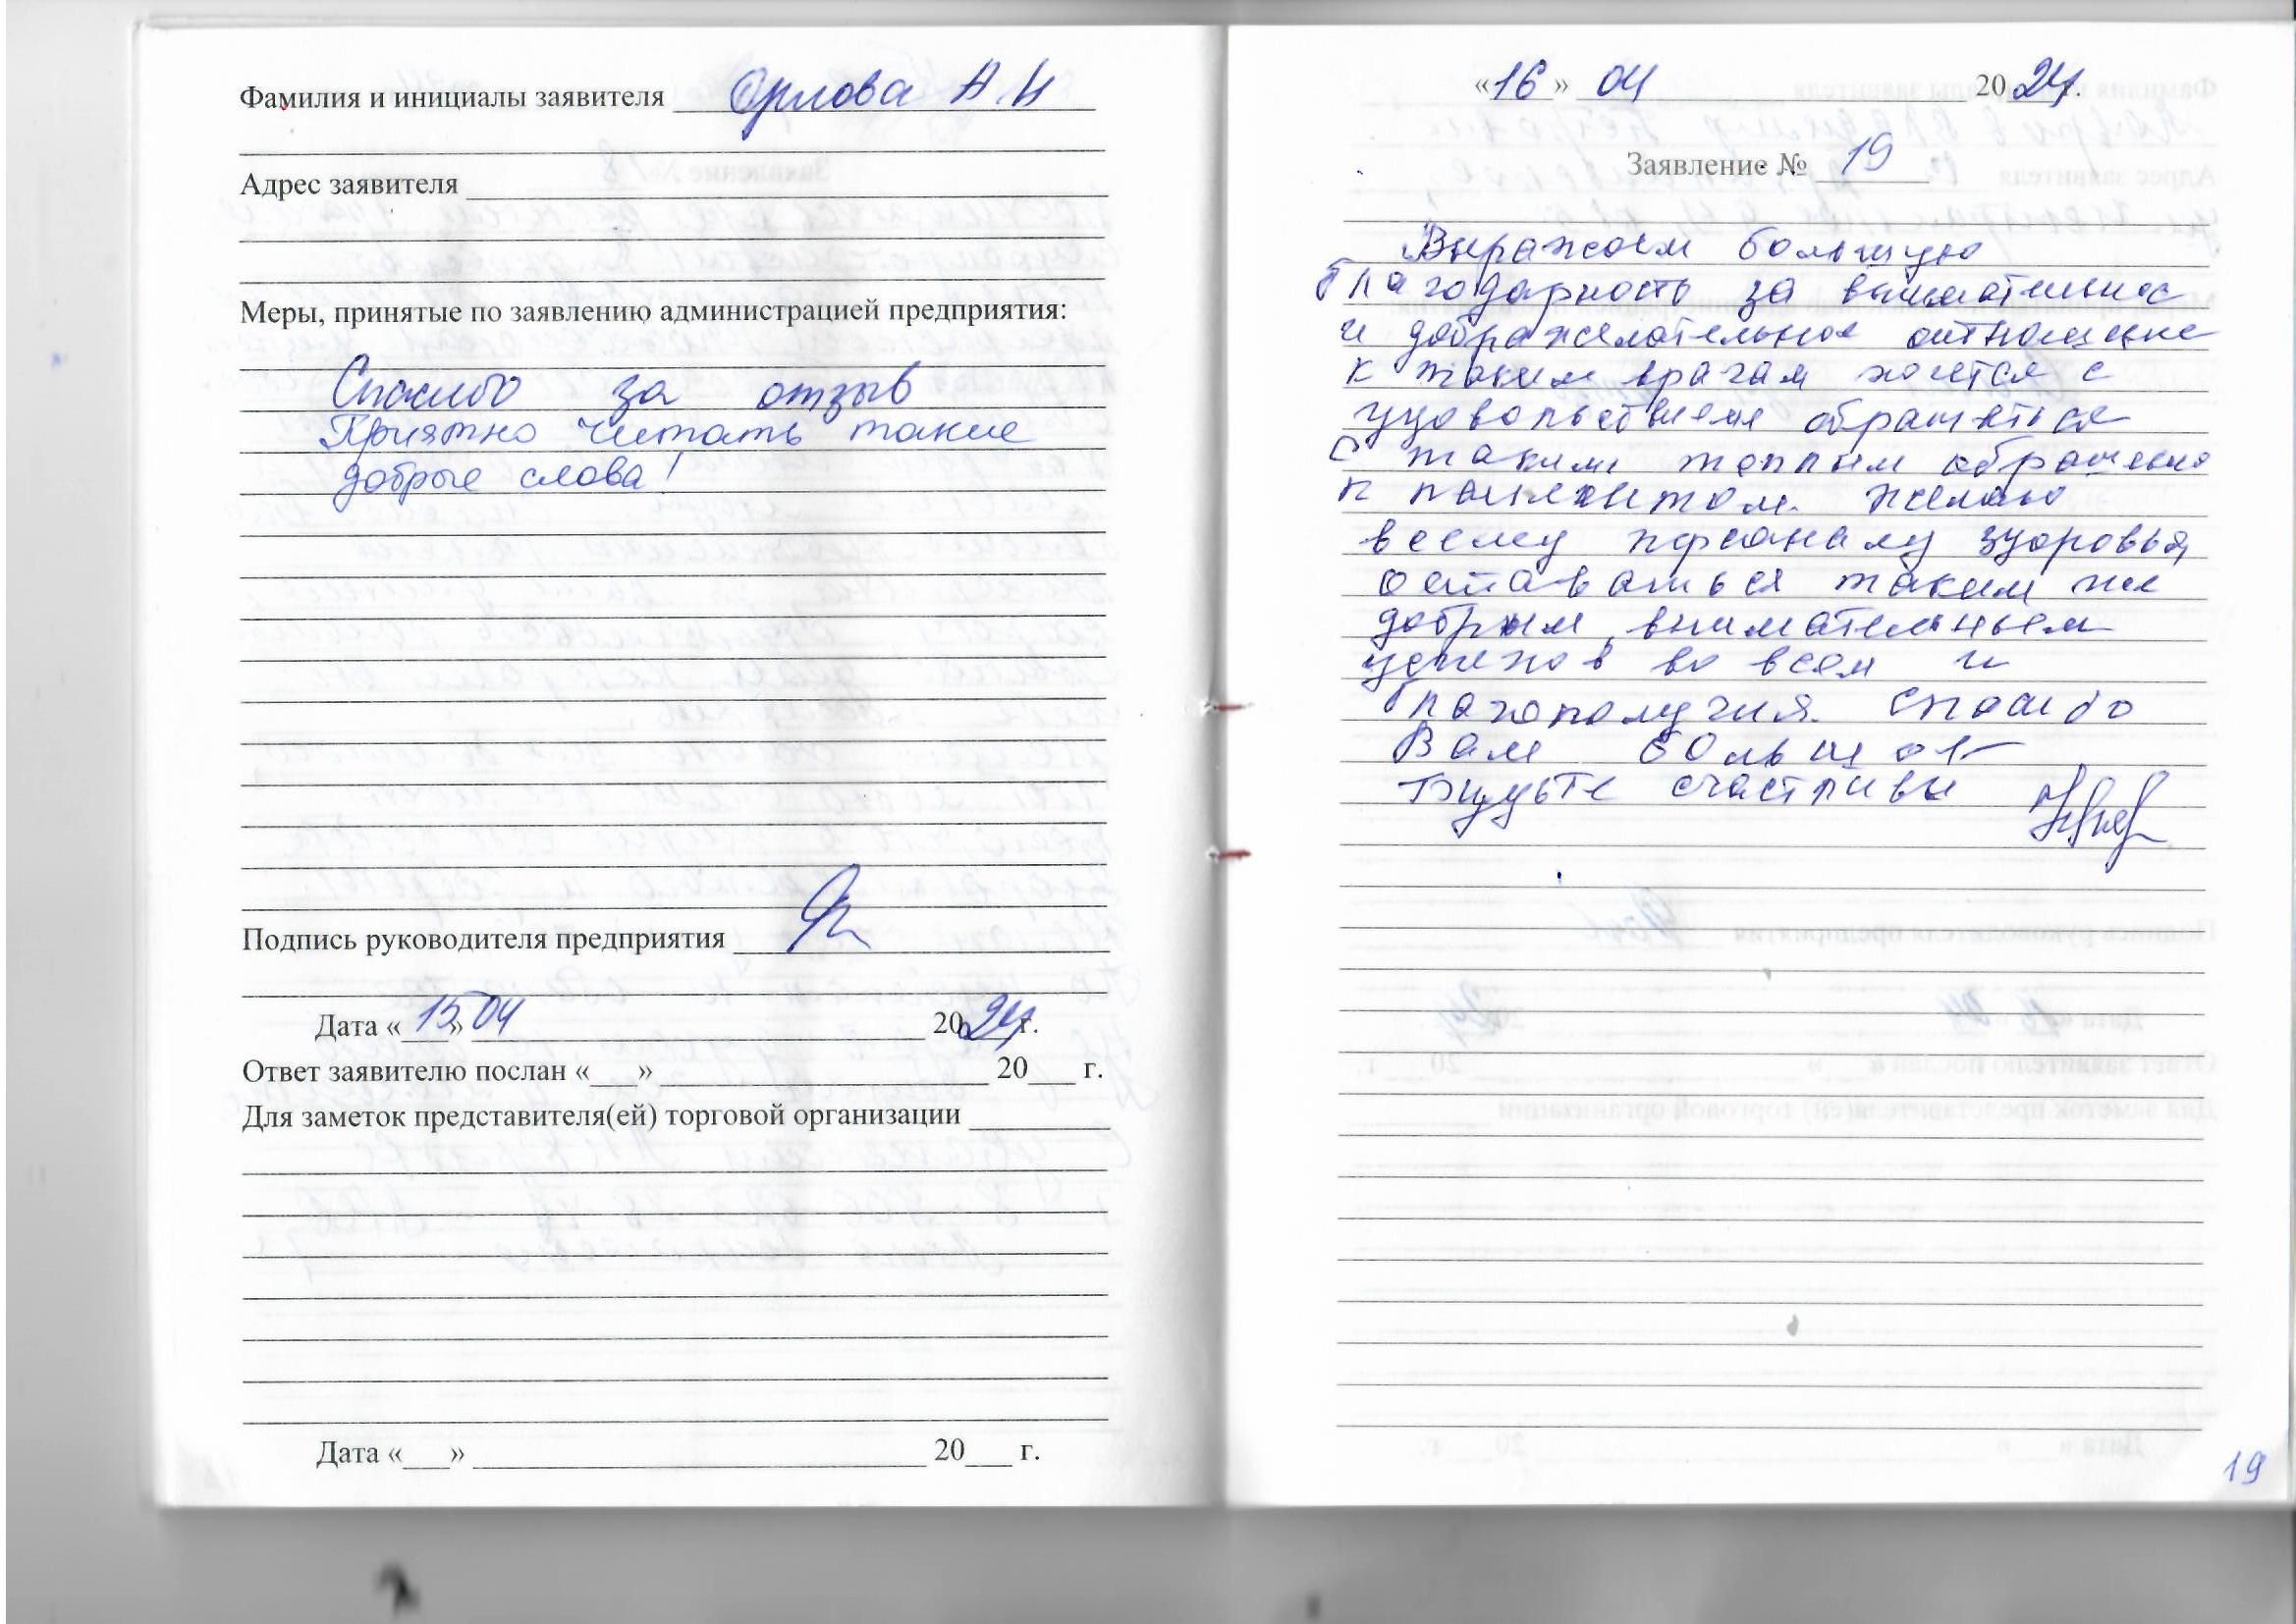 Фамилия и инициалы заявителя Орлова А.Н
Адрес заявителя
Меры, принятые по заявлению администрацией предприятия:
Спасибо за отзыв
Приятно читать такие
добрые слова!
Подпись руководителя предприятия
Дата «15» 04 2024 г.
Ответ заявителю послан «___» 20___ г.
Для заметок представителя(ей) торговой организации
Дата «___» 20___ г.
«16» 04 2024 г.
Заявление № 19
Выражаем большую
благодарность за внимательное
и доброжелательное отношение
к таким врачам хочется с
удовольствием обращаться
с таким теплым обращение
к пациентом. желаю
всему персоналу здоровья,
оставаться таким же
добрым, внимательным
успехов во всем и
благополучия. спасибо
Вам большое
Будьте счастливы
19